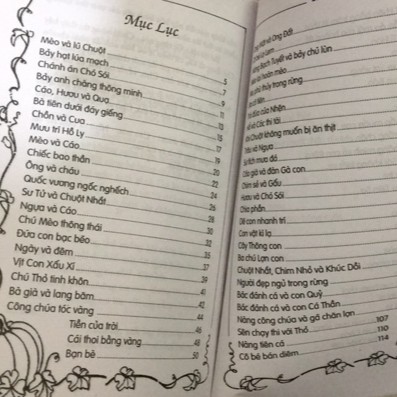 Mục Lục
Mèo và lũ Chuột
Bảy hạt lúa mạch 5
Chánh án Chó Sói 7
Bảy anh chàng thông minh 9
Cáo, Hươu và Quạ 11
Bà tiên dưới đáy giếng 13
Chồn và Cua 15
Mưu trí Hồ Ly 17
Mèo và Cáo 19
Chiếc bao thần 20
Ông và cháu 22
Quốc vương ngốc nghếch 24
Sư Tử và Chuột Nhắt 26
Ngựa và Cáo 28
Chú Mèo thông thái 30
Đứa con bạc bẽo 32
Ngày và đêm 35
Vịt Con Xấu Xí 37
Chú Thỏ tinh khôn 39
Bà già và lang băm 42
Công chúa tóc vàng 44
Tiền của trời 46
Cái thoi bằng vàng 48
Bạn bè 50
và Ong Đất
Bạch Tuyết và bảy chú lùn
hoàn mèo
phù thủy trong rừng
của Nhện
và Các thì tài
Chuột không muốn bị ăn thịt
và Ngựa
mưa đá
Cáo già và đàn Gà con
Chim sẻ và Gấu
Hươu và Chó Sói
Chia phần
Dê con nhanh trí
Con vật kì lạ
Cây Thông con
Ba chú Lợn con
Chuột Nhắt, Chim Nhỏ và Khúc Dồi
Người đẹp ngủ trong rừng
Bác đánh cá và con Quỷ
Bác đánh cá và con Cá Thần
Nàng công chúa và gã chăn lợn
Sên chạy thi với Thỏ 107
Nàng tiên cá 110
Cô bé bán diêm 114